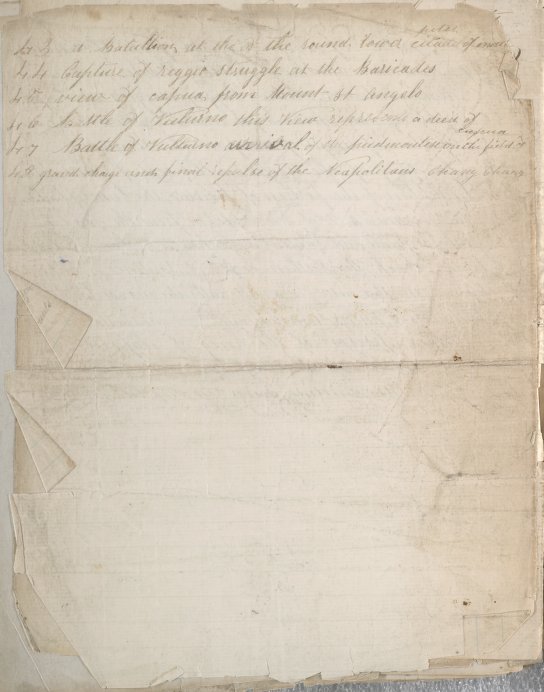 43 a Batallion at the of the round tower citadel of
44 Capture of reggio struggle at the Baricades
45 view of capua from Mount St Angelo
46 Battle of Vulturno this View represents a deed of
Capua
47 Battle of Vulturno arrival of the piedmontese on the field of
48 grand charge and final repulse of the Neapolitans